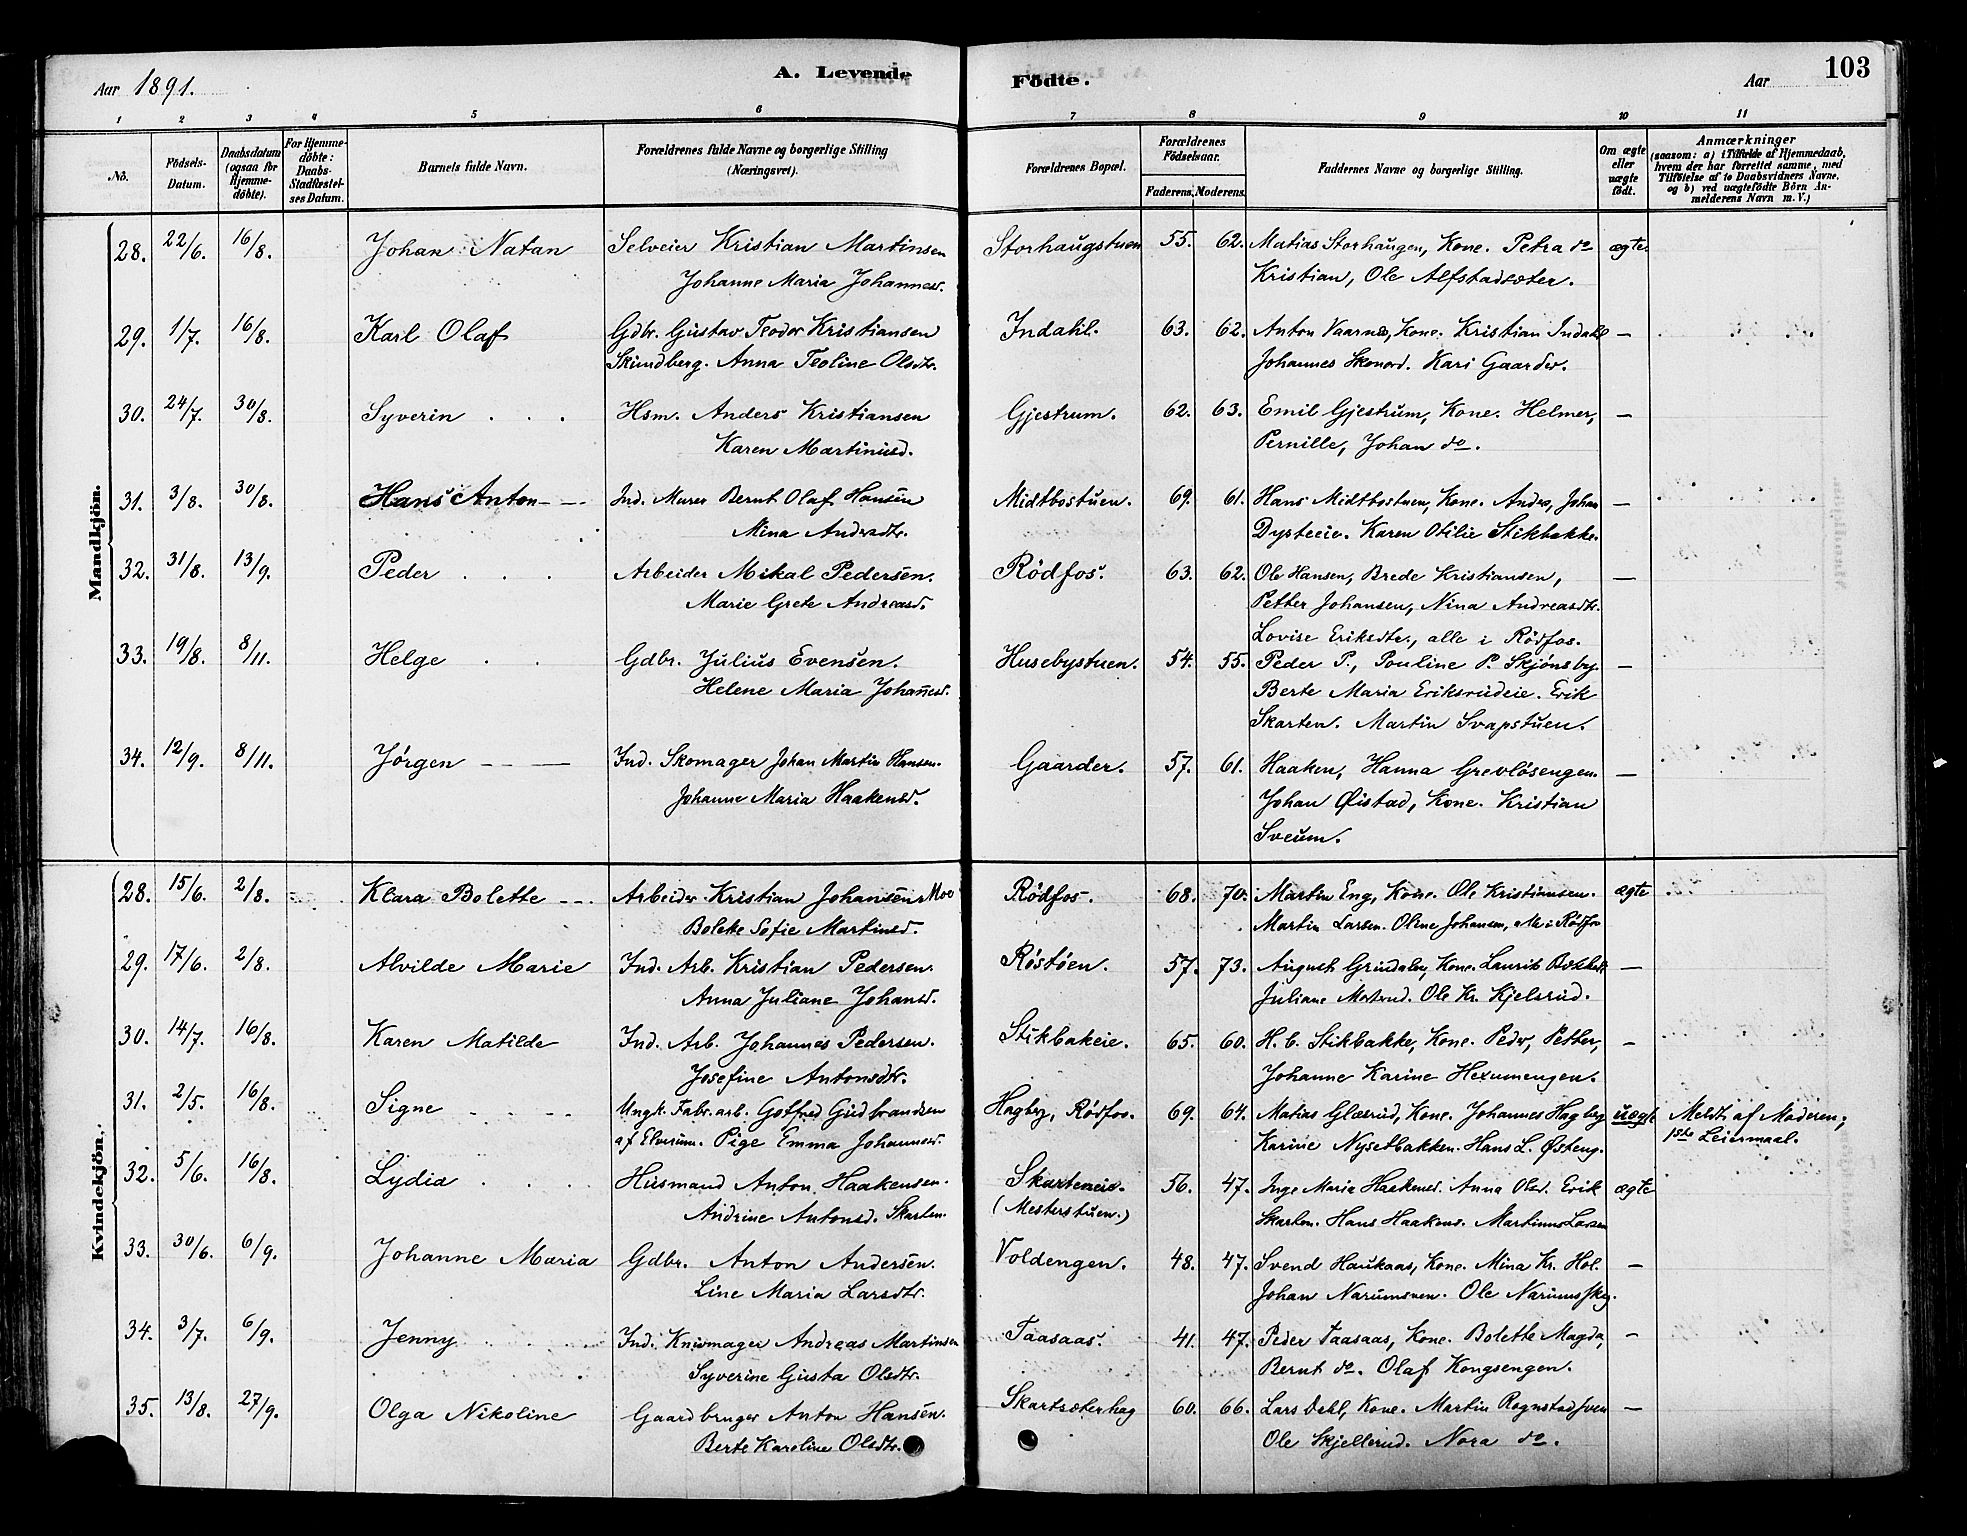 Aar 1891.
A. Levende
Födte.
Aar
103
1 2 3 4 5 6 7 8 9 10 11
No.
Födsels-Datum.
Daabsdatum (ogsaa for Hjemme-döbte).
For Hjemme-döbte: Daabs-Stadfæstel-ses Datum.
Barnets fulde Navn.
Forældrenes fulde Navne og borgerlige Stilling (Næringsvei).
Forældrenes Bopæl.
Forældrenes Födselsaar.
Faderens. Moderens.
Faddernes Navne og borgerlige Stilling.
Om ægte eller uægte födt.
Anmærkninger
(saasom: a) i Tilfælde af Hjemmedaab, hvem der har forrettet samme, med Tilföielse af to Daabsvidners Navne, og b) ved uægtefödte Börn An-melderens Navn m. V.)
Mandkjön.
28. 22/6. 16/8. Johan Natan Selveier Kristian Martinsen Storhaugstuen 55. 62. Matias Storhaugen, Kone. Petra do ægte
Johanne Maria Johannesd. Kristian, Ole Alfstadsæter.
29. 1/7. 16/8. Karl Olaf Gdbr. Gustav Teodor Kristiansen Indahl. 63. 62. Anton Vaarnæs, Kone. Kristian Indahl —
Skundberg. Anna Teoline Olsdtr. Johannes Skonord. Kari Gaarder.
30. 24/7. 30/8. Syverin Hsm. Anders Kristiansen Gjestrum. 62. 63. Emil Gjestrum, Kone. Helmer, —
Karen Martinusd. Pernille, Johan do.
31. 3/8. 30/8. Hans Anton Ind. Murer Bernt Olaf Hansen Midtbostuen. 69. 61. Hans Midtbostuen, Kone. Andrs, Johan —
Mina Andrsdtr. Dysteeie. Karen Otilie Stikbakke.
32. 31/8. 13/9. Peder Arbeider Mikal Pedersen. Rödfos. 63. 62. Ole Hansen, Brede Kristiansen, —
Marie Grete Andreasd. Petter Johansen, Nina Andreasdtr.
Lovise Eriksdtr., alle i Rödfos.
33. 19/8. 8/11. Helge Gdbr. Julius Evensen. Husebystuen. 54. 55. Peder P., Pouline P. Skjönsby. —
Helene Maria Johannesd. Berte Maria Eriksrudeie. Erik
Skarten. Martin Svapstuen.
34. 12/9. 8/11. Jørgen Ind. Skomager Johan Martin Hansen. Gaarder. 57. 61. Haaken, Hanna Grevlösengen. —
Johanne Maria Haakensd. Johan Øistad, Kone. Kristian
Sveum.
Kvindekjön.
28. 15/6. 2/8. Klara Bolette Arbeider Kristian Johansen Moe Rödfos. 68. 70. Martin Eng, Kone. Ole Kristiansen. ægte
Bolette Sofie Martinsd. Martin Larsen. Oline Johansen, alle i Rödfos
29. 17/6. 2/8. Alvilde Marie Ind. Arb. Kristian Pedersen. Röstöen. 57. 73. August Grindalen, Kone. Laurits —
Anna Juliane Johansd. Juliane Ole Kr. Kjelsrud.
30. 14/7. 16/8. Karen Matilde Ind. Arb. Johannes Pedersen. Stikbakeie. 65. 60. H. C. Stikbakke, Kone. Peder, Petter, —
Josefine Antonsdtr. Johanne Karine Hexumengen.
31. 2/5. 16/8. Signe Ungk. Fabr. arb. Gotfred Gudbrandsen Hagby, Rödfos. 69. 64. Matias Glæsrud, Kone. Johannes Hagby uægte Meldt af Moderen;
af Elverum. Pige Emma Johannesd. Karine Nysetbakken. Hans L. Østeng. 1ste Leiermaal.
32. 5/6. 16/8. Lydia Husmand Anton Haakensen. Skarteneie. 56. 47. Inge Maria Haakensd. Anna Olsd. Erik ægte
Andrine Antonsd. Skarten. (Mesterstuen.) Skarten. Hans Haakens. Martinus Larsen
33. 30/6. 6/9. Johanne Maria Gdbr. Anton Andersen. Voldengen. 48. 47. Svend Haukaas, Kone. Mina Kr. Hol. —
Line Maria Larsdtr. Johan Narumsven. Ole Narums
34. 3/7. 6/9. Jenny Ind. Knivmager Andreas Martinsen Taasaas. 41. 47. Peder Taasaas, Kone. Bolette Magda, —
Syverine Gusta Olsdtr. Bernt do. Olaf Kongsengen.
35. 13/8. 27/9. Olga Nikoline Gaardbruger Anton Hansen. Skartsæterhag 60. 66. Lars Dehl, Kone. Martin Rognstad —
Berte Karoline Olsdtr. Ole Skjellerud. Nora do.